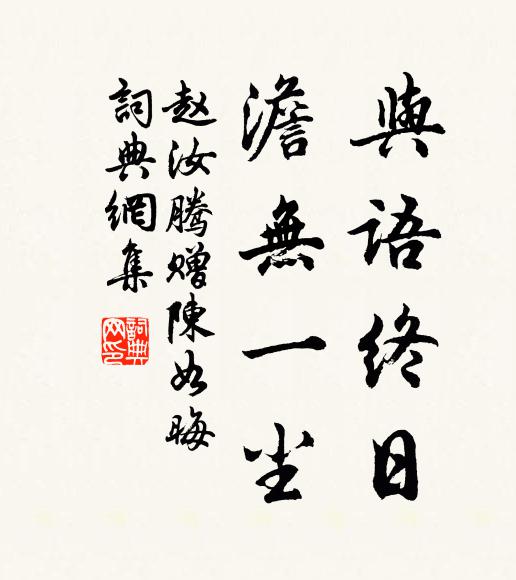 與語終日
澹無一尘
赵汝腾赠陳如晦
詞典網集
詞典网印